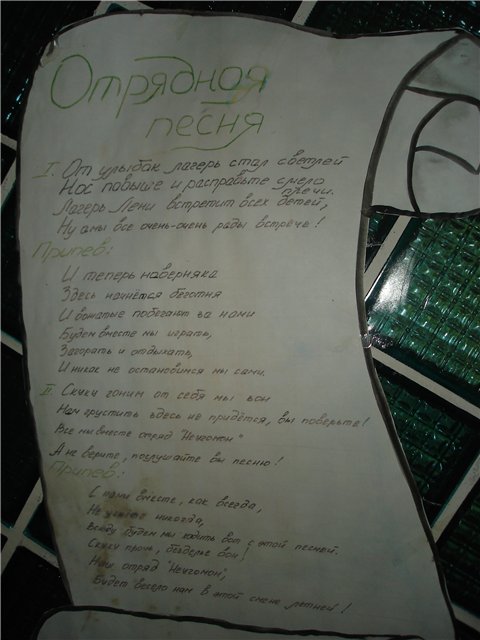 Отрядная
песня
I. От улыбок лагерь стал светлей
Нос повыше и расправьте смело
плечи.
Лагерь Лени встретит всех детей,
Ну а мы все очень-очень рады встрече!
Припев:
И теперь наверняка
Здесь начнётся беготня
И вожатые побегают за нами
Будем вместе мы играть,
Загорать и отдыхать,
И никак не остановимся мы сами.
II. Скуку гоним от себя мы вон
Нам грустить здесь не придётся, вы поверьте!
Все мы вместе отряд "Неугомон"
А не верите, послушайте вы песню!
Припев:
С нами вместе, как всегда,
Не никогда,
Всюду будем мы ходить вот с этой песней.
Скуку прочь, безделье вон!
Наш отряд "Неугомон",
Будет весело нам в этой смене летней!